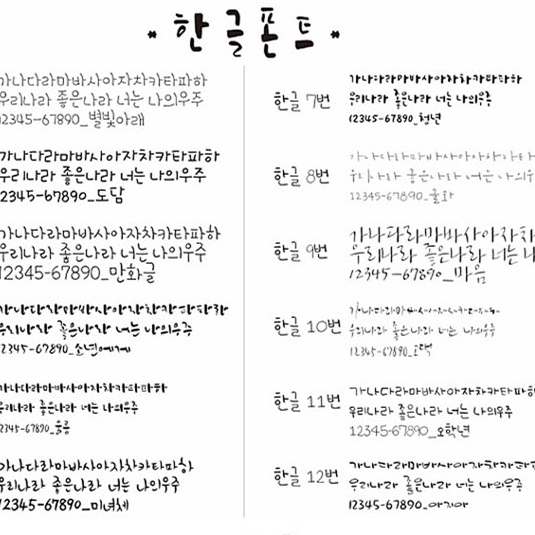 * 한글폰트 *
가나다라마바사아자차카타파하
우리나라 좋은나라 너는 나의우주
12345-67890_별빛아래
가나다라마바사아자차카타파하
우리나라 좋은나라 너는 나의우주
12345-67890_도담
가나다라마바사아자차카타파하
우리나라 좋은나라 너는 나의우주
12345-67890_만화글
가나다라마바사아자차카타파하
우리나라 좋은나라 너는 나의우주
12345-67890_소년에게
가나다라마바사아자차카타파하
우리나라 좋은나라 너는 나의우주
12345-67890_몽룡
가나다라마바사아자차카타파하
우리나라 좋은나라 너는 나의우주
12345-67890_미녀체
한글 7번
가나다라마바사아자차카타파하
우리나라 좋은나라 너는 나의우주
12345-67890_청년
한글 8번
가나다라마바사아자차카타
우리나라 좋은나라 너는 나의우
12345-67890_올화
한글 9번
가나다라마바사아자차
우리나라 좋은나라 너는 나
12345-67890_마음
한글 10번
가나다라마바사아자차카타파하
우리나라 좋은나라 너는 나의우주
12345-67890_고딕
한글 11번
가나다라마바사아자차카타파하
우리나라 좋은나라 너는 나의우주
12345-67890_오학년
한글 12번
가나다라마바사아자차카타파
우리나라 좋은나라 너는 나의우주
12345-67890_아지아